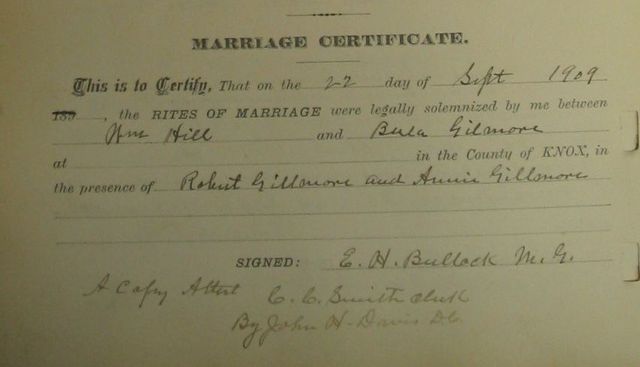 MARRIAGE CERTIFICATE.
This is to Certify, That on the 22 day of Sept 1909
189 , the RITES OF MARRIAGE were legally solemnized by me between
Wm Hill and Bula Gilmore
at in the County of KNOX, in
the presence of Robert Gillmore and Annie Gillmore
SIGNED: E. H. Bullock M. G.
A Copy Attest C. C. Smith Clerk
By John H. Davis D.C.